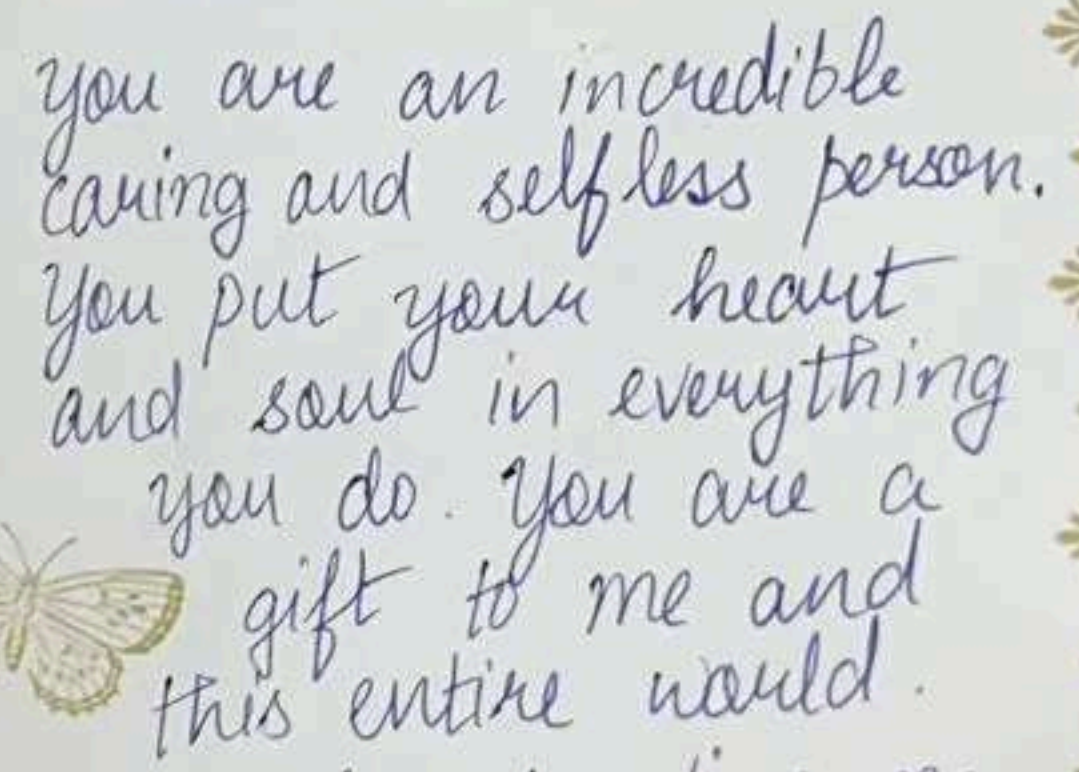 you are an incredible
caring and selfless person.
You put your heart
and soul in everything
you do. You are a
gift to me and
this entire world.